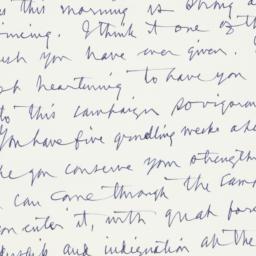 this morning is strong a
vincing. I think it one of th
you have ever given.
heartening to have you
to this campaign so vigorou
You have five grindling weeks ahe
you conserve your strength
can come through the cam
enter it, with great for
and indignation at the